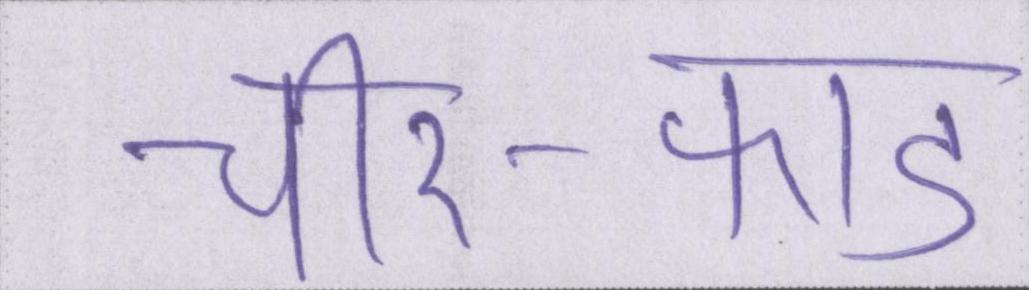 चीर-फाड